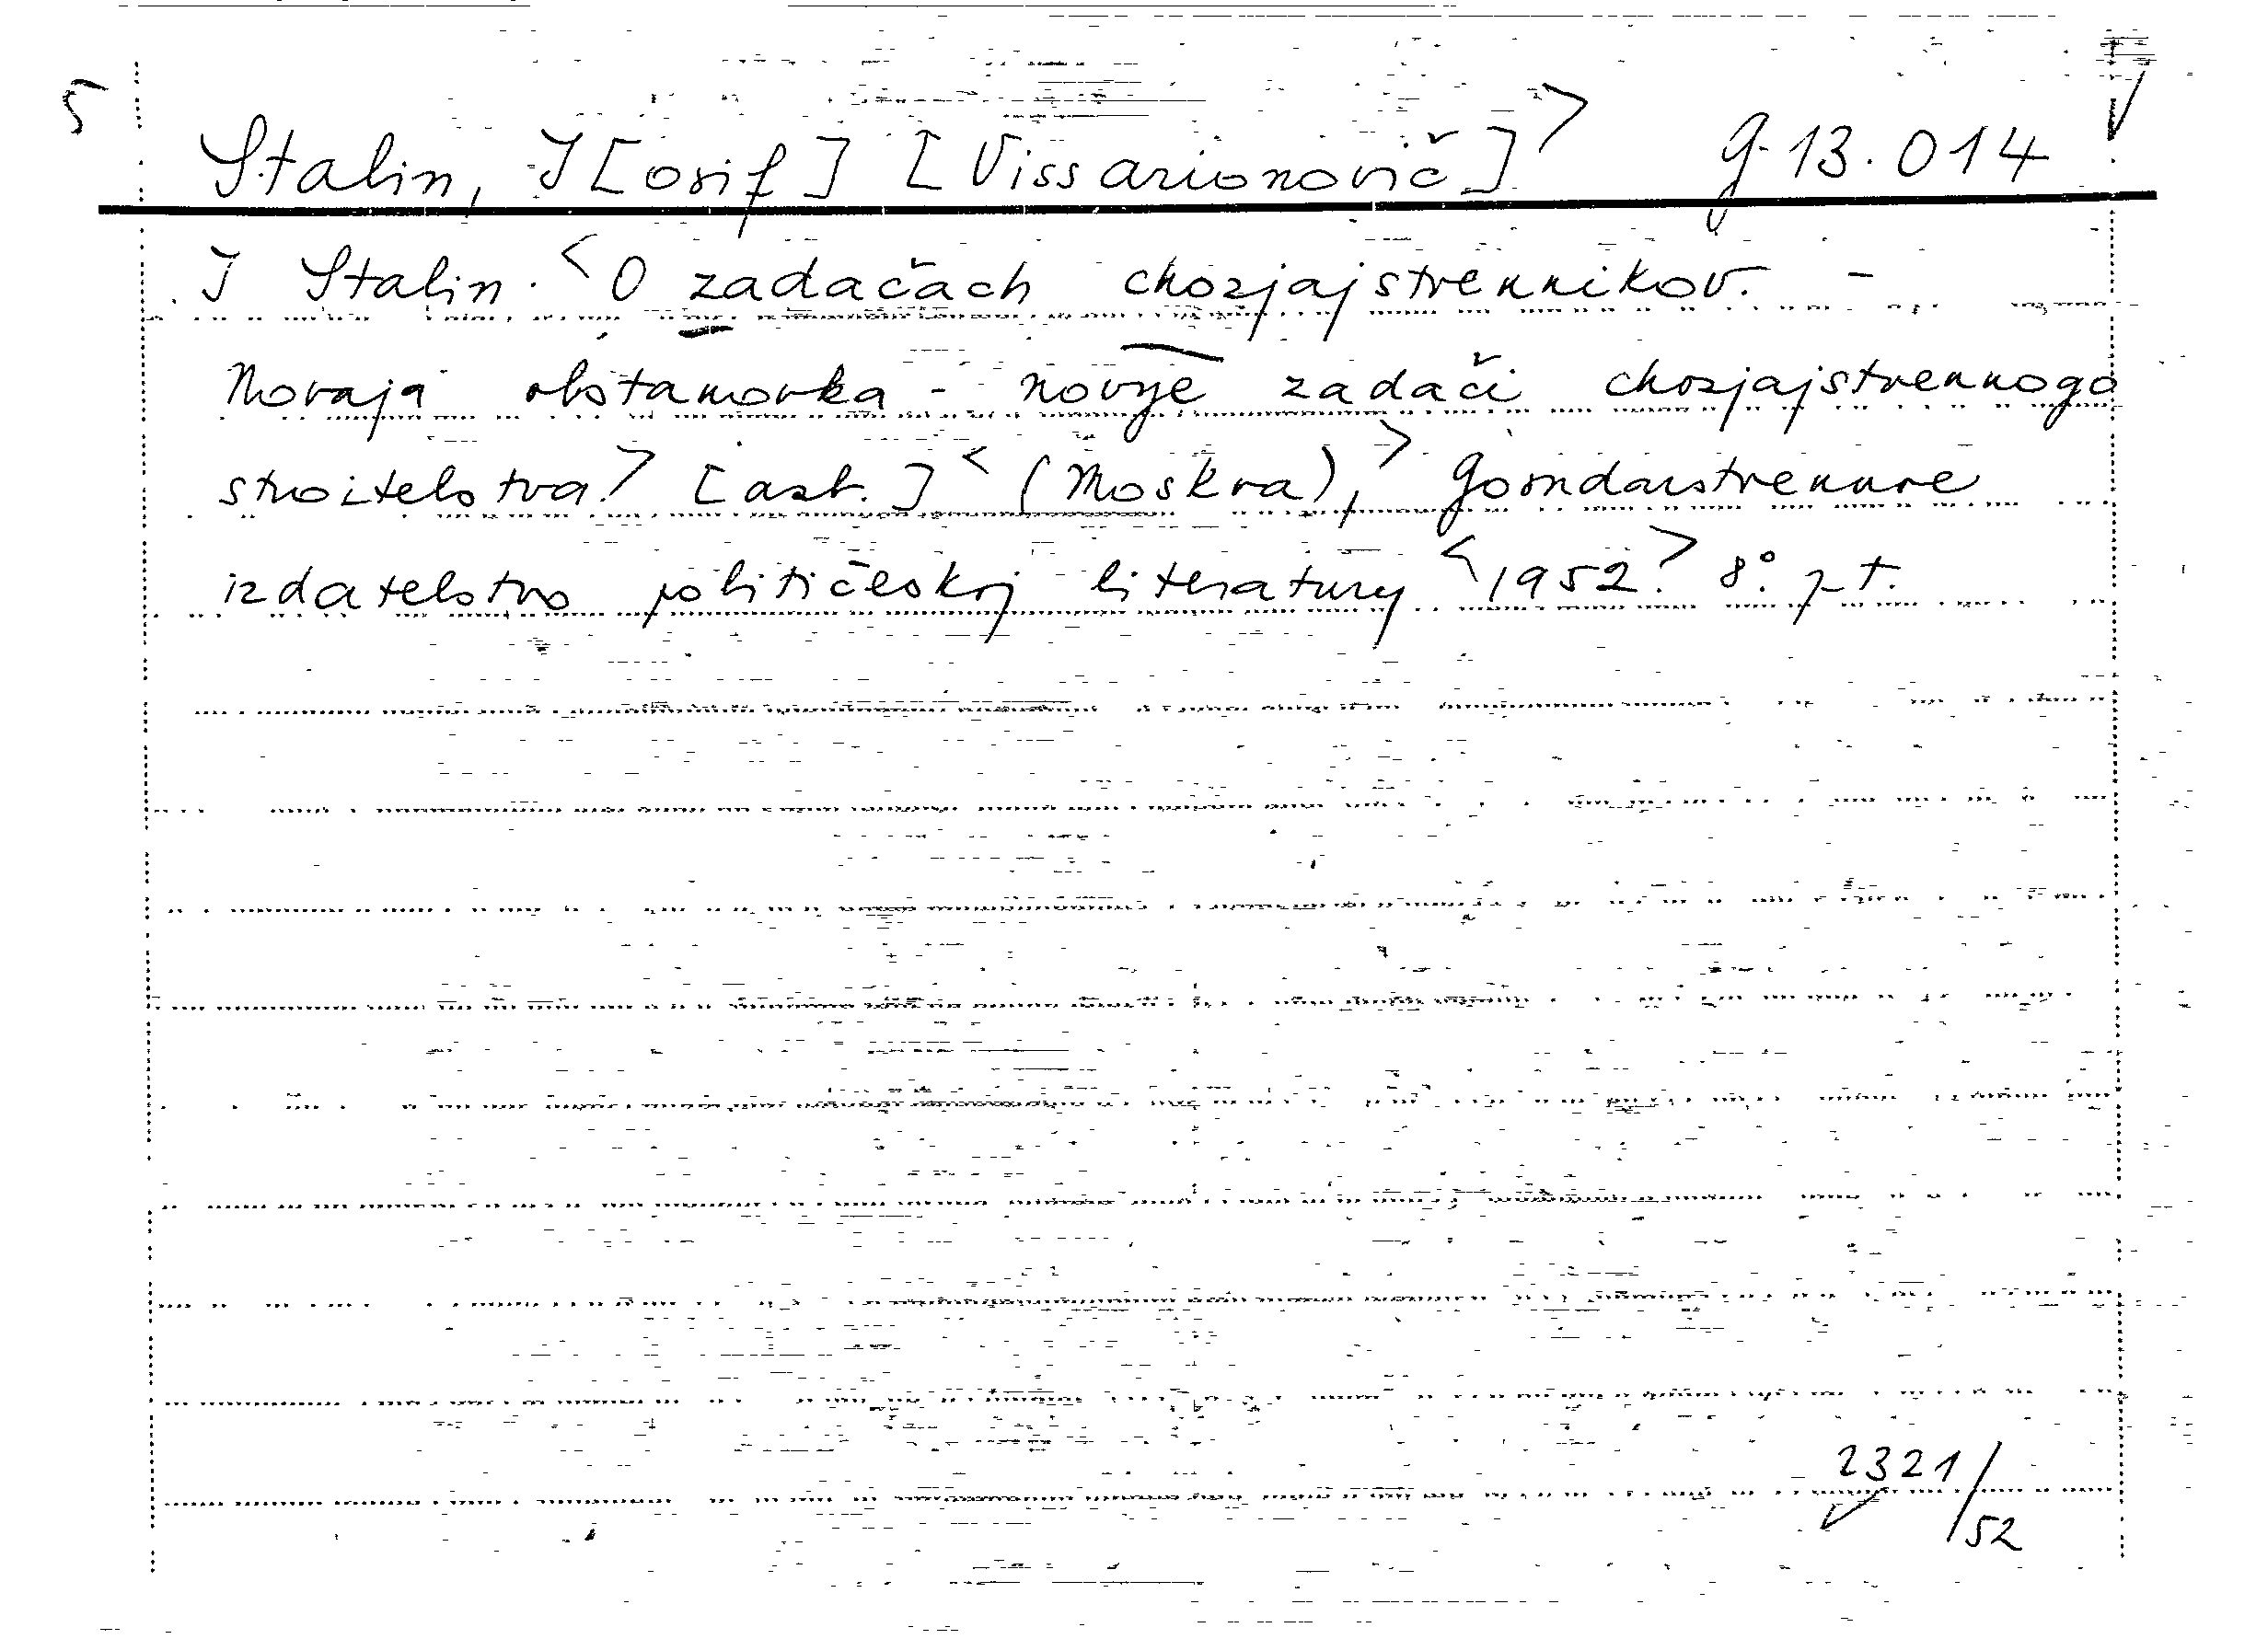 5
Stalin, J[osif] [Vissarionovič]> G 13.014
J Stalin. <O zadačach chozjajstvennikov. –
Novaja obstanovka - novye zadači chozjajstvennogo
stroitelstva.> [asl.] <(Moskva),> Gosudarstvennoe
izdatelstvo političeskoj literatury <1952.> 8°.
2321/52